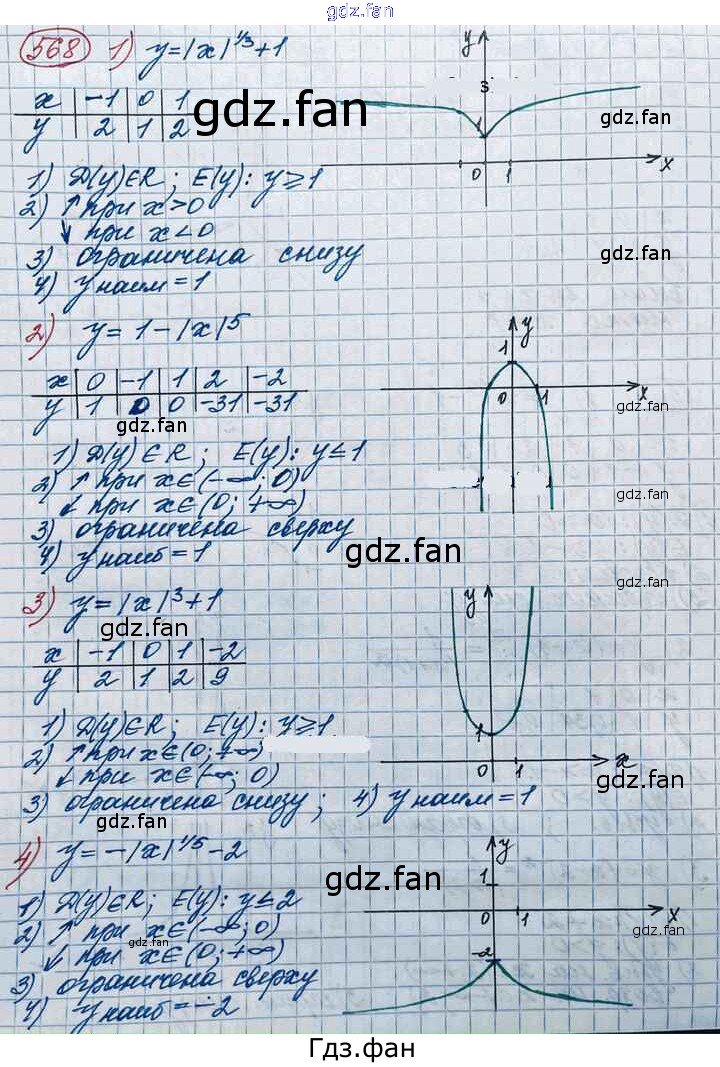 gdz.fan
568 1) y=|x|^1/3+1
x -1 0 1
y 2 1 2
gdz.fan
y
1
0 1 x
gdz.fan
1) D(y)∈R; E(y): y≥1
2) ↑ при x>0
↓ при x<0
3) ограничена снизу
gdz.fan
4) y наим=1
2) y=1-|x|^5
x 0 -1 1 2 -2
y 1 0 0 -31 -31
gdz.fan
y
1
0 1 x
gdz.fan
1) D(y)∈R; E(y): y≤1
2) ↑ при x∈(-∞; 0)
↓ при x∈(0; +∞)
gdz.fan
3) ограничена сверху
4) y наиб=1
gdz.fan
3) y=|x|^3+1
gdz.fan
gdz.fan
x -1 0 1 -2
y 2 1 2 9
y
1
0 1 x
gdz.fan
1) D(y)∈R; E(y): y≥1
2) ↑ при x∈(0; +∞)
↓ при x∈(-∞; 0)
3) ограничена снизу; 4) y наим=1
gdz.fan
4) y=-|x|^1/5-2
gdz.fan
y
1
0 1 x
-2
1) D(y)∈R; E(y): y≤2
2) ↑ при x∈(-∞; 0)
↓ при x∈(0; +∞)
gdz.fan
gdz.fan
3) ограничена сверху
4) y наиб=-2
Гдз.фан